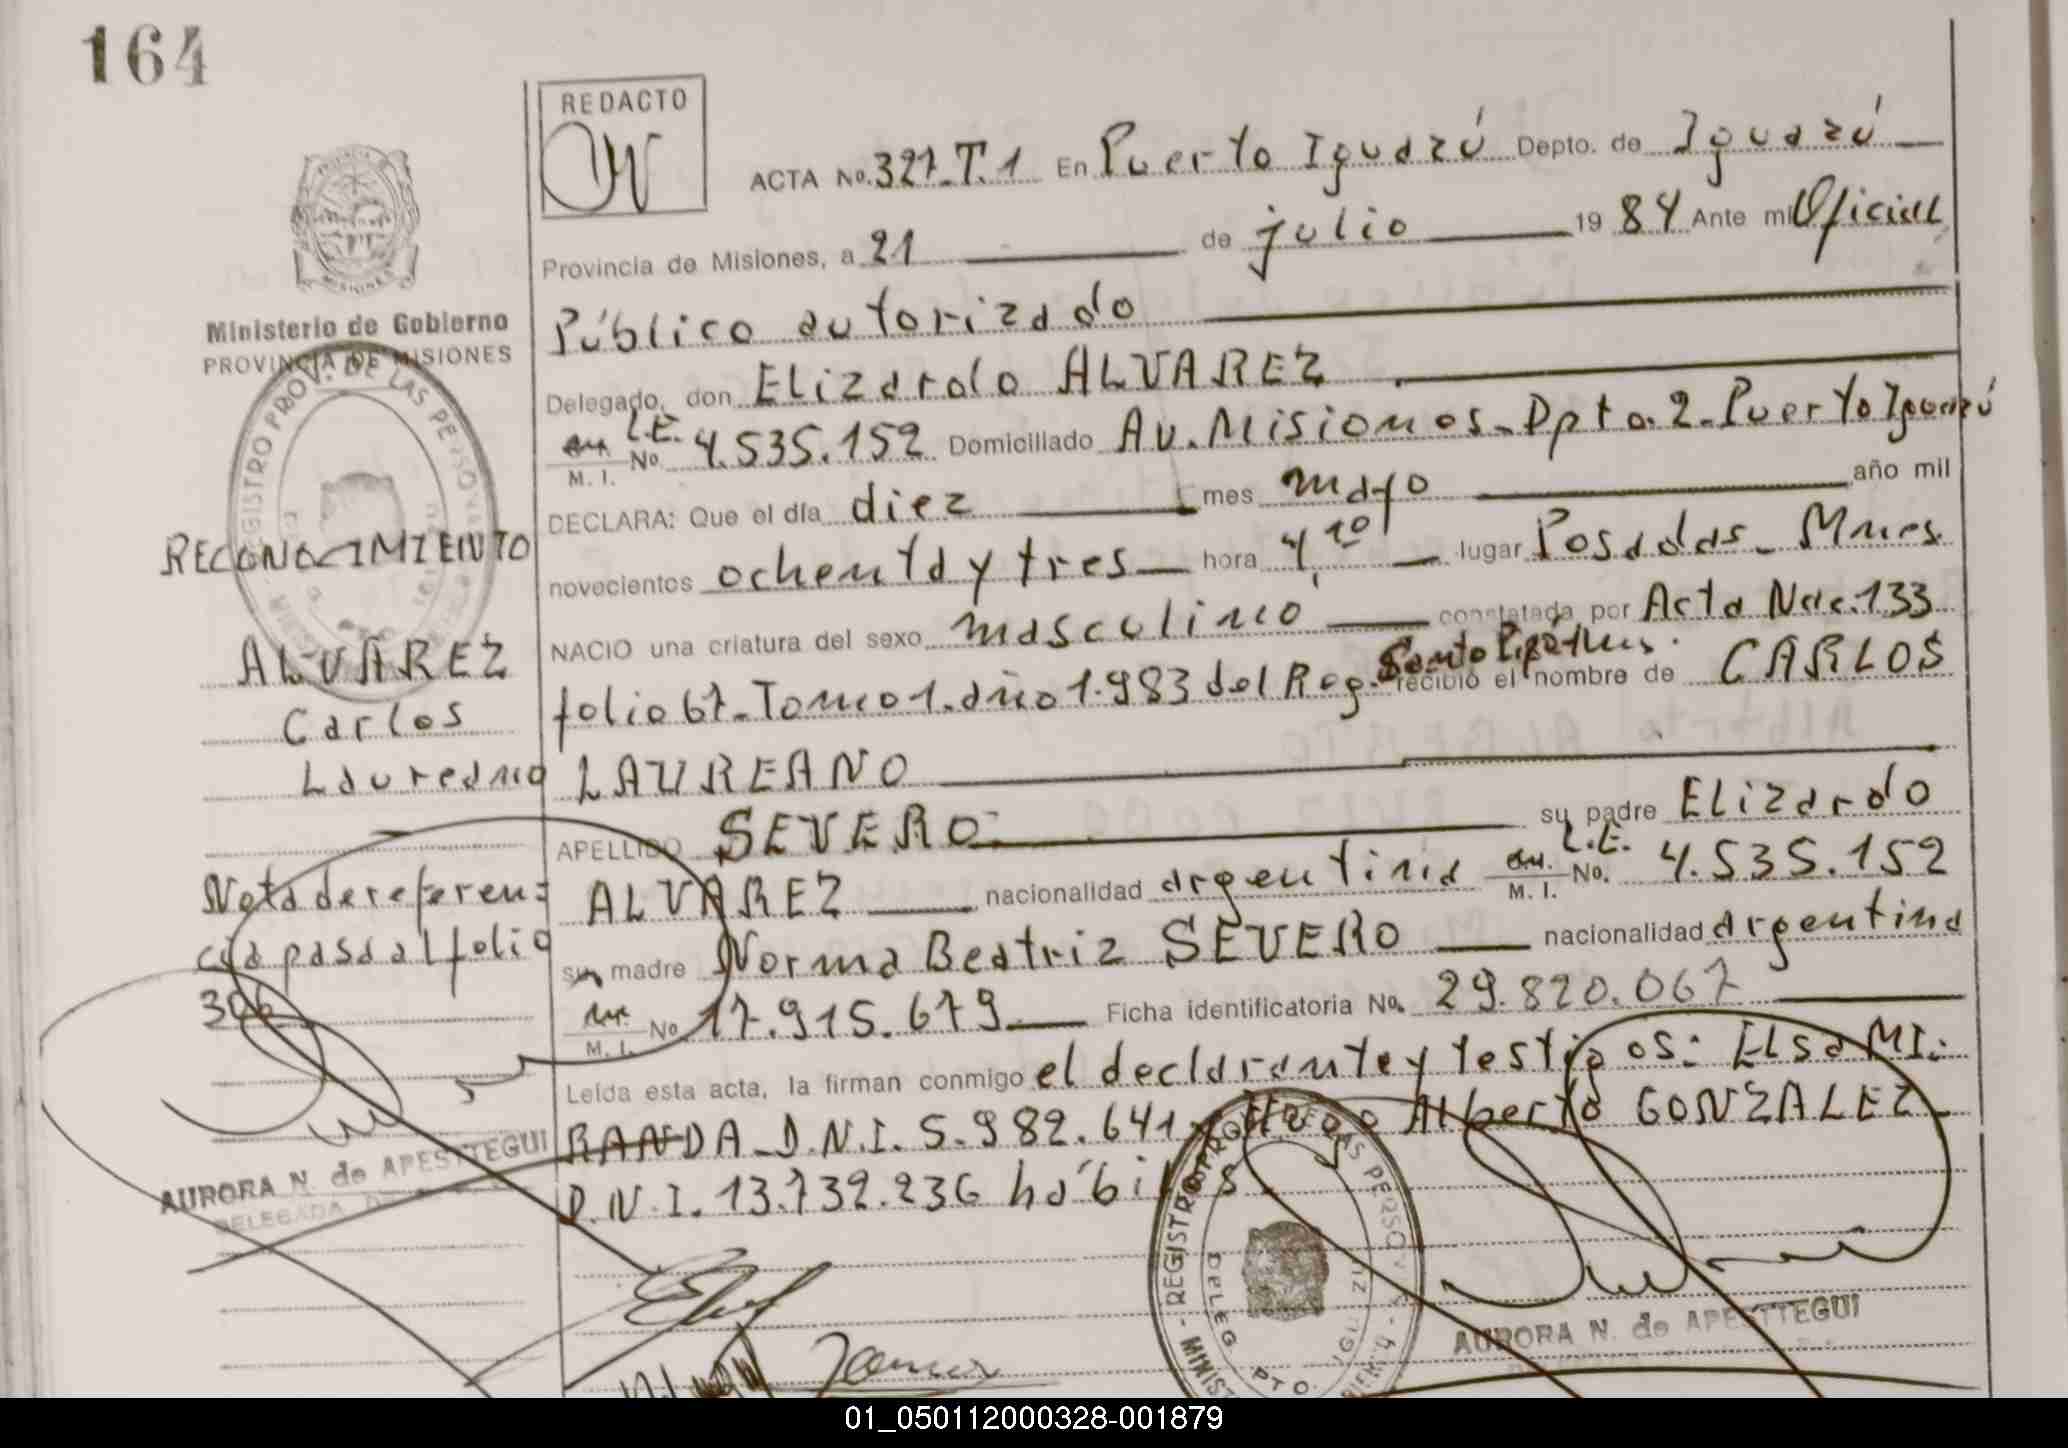 164
REDACTO
ACTA No. 327-T.1 En Puerto Iguazú Depto. de Iguazú
Provincia de Misiones, a 21 de julio 1984 Ante mi Oficial
Público autorizado
Ministerio de Gobierno
PROVINCIA DE MISIONES
Delegado, don Elizardo ALVAREZ
L.E.
M. I. No 4.535.152 Domiciliado Av. Misiones-Dpto. 2-Puerto Iguazú
DECLARA: Que el día diez mes mayo año mil
RECONOCIMIENTO
novecientos ochenta y tres hora 4,10 lugar Posadas-Mnes
NACIO una criatura del sexo masculino constatada por Acta Nac. 133
folio 67-Tomo 1-año 1.983 del Reg. recibió el nombre de CARLOS
LAUREANO
ALVAREZ
Carlos
Laureano
APELLIDO SEVERO su padre Elizardo
ALVAREZ nacionalidad argentina L.E. M. I. No. 4.535.152
su madre Norma Beatriz SEVERO nacionalidad argentina
M. I. No 17.915.679 Ficha identificatoria No. 29.820.067
Nota de referen=
cia pasa al folio
306
Leída esta acta, la firman conmigo el declarante y testigos: Elsa MI=
RANDA-D.N.I. 5.982.641 y Hugo Alberto GONZALEZ-
D.N.I. 13.732.236 hábiles
AURORA N. de APESTTEGUI
DELEGADA
REGISTRO PROV. DE LAS PERSONAS
AURORA N. de APESTTEGUI
01_050112000328-001879